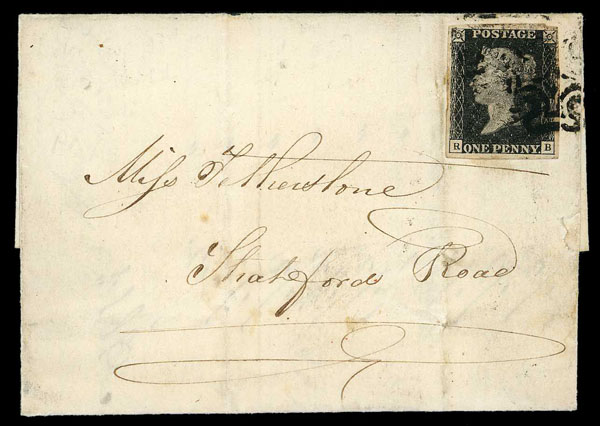 POSTAGE
R ONE PENNY B
Miss Fetherstone
Stratford Road